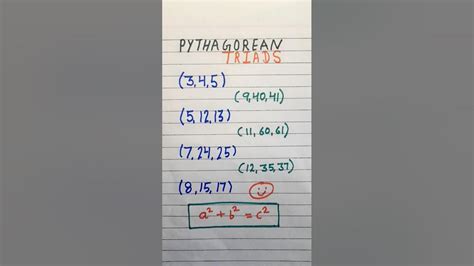 PYTHAGOREAN
TRIADS
(3,4,5)
(9,40,41)
(5,12,13)
(11,60,61)
(7,24,25)
(12,35,37)
(8,15,17)
a² + b² = c²